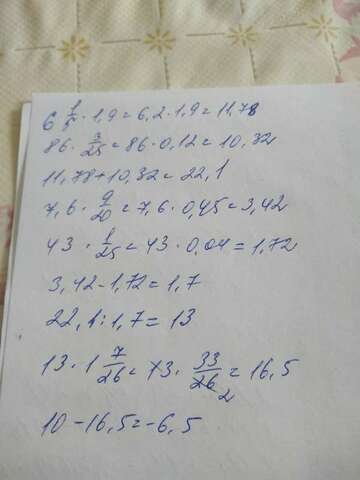 6 1/5 · 1,9 = 6,2 · 1,9 = 11,78
86 · 3/25 = 86 · 0,12 = 10,32
11,78 + 10,32 = 22,1
7,6 · 9/20 = 7,6 · 0,45 = 3,42
43 · 1/25 = 43 · 0,04 = 1,72
3,42 - 1,72 = 1,7
22,1 : 1,7 = 13
13 · 1 7/26 = 13 · 33/26 2 = 16,5
10 - 16,5 = -6,5